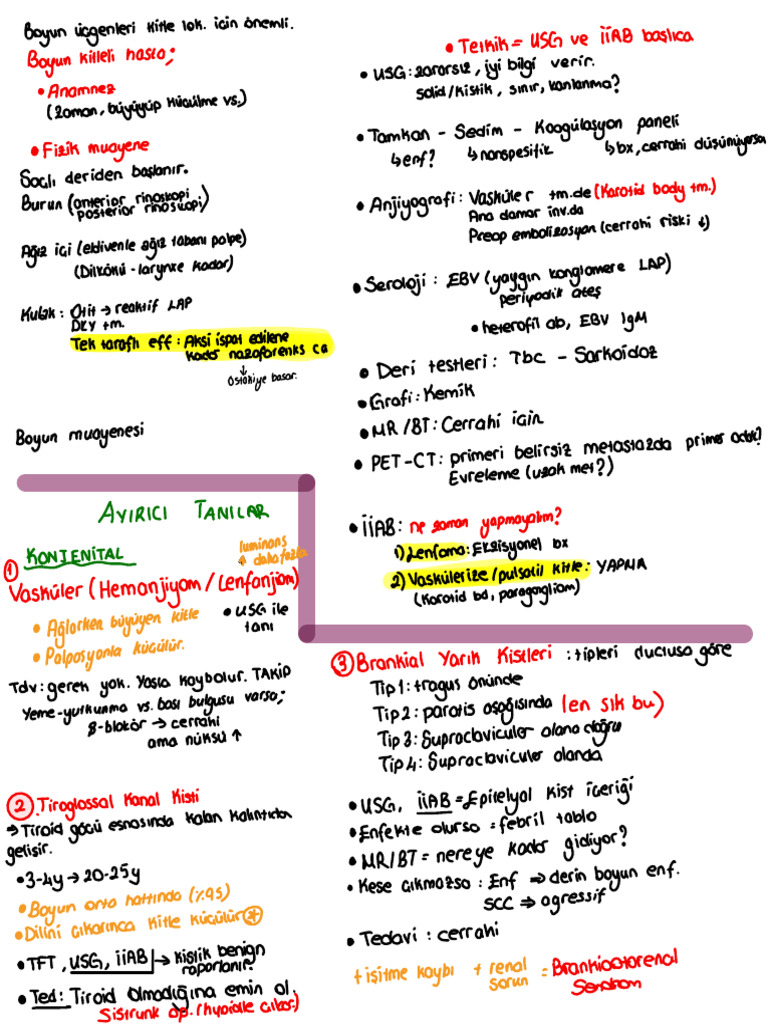 Boyun üçgenleri kitle lok. için önemli.
Boyun kitleli hasta;
• Anamnez
(zaman, büyüyüp küçülme vs.)
• Fizik muayene
Saçlı deriden başlanır.
Burun (anterior rinoskopi
posterior rinoskopi)
Ağız içi (eldivenle ağız tabanı palpe)
(Dilkökü - larynxe kadar)
Kulak: Otit → reaktif LAP
DKY tm.
Tek taraflı eff: Aksi ispat edilene
kadar nazofarenks ca
↓
östakiye basar.
Boyun muayenesi
• Tetkik = USG ve İİAB başlıca
• USG: zararsız, iyi bilgi verir.
solid/kistik, sınır, kanlanma?
• Tamkan - Sedim - Koagülasyon paneli
↳ enf? ↳ nonspesifik ↳ bx, cerrahi düşünüyorsa
• Anjiyografi: Vasküler tm.de (Karotid body tm.)
Ana damar inv.da
Preop embolizasyon (cerrahi riski ↓)
• Seroloji: EBV (yaygın konglomere LAP)
periyodik ateş
• heterofil ab, EBV IgM
• Deri testleri: Tbc - Sarkoidoz
• Grafi: Kemik
• MR/BT: Cerrahi için
• PET-CT: primeri belirsiz metastazda primer odak?
Evreleme (uzak met?)
• İİAB: ne zaman yapmayalım?
1) Lenfoma: Eksizyonel bx
2) Vaskülerize/pulsatil kitle: YAPMA
(Karotid bd, paragangliom)
AYIRICI TANILAR
① KONJENİTAL
luminans
↑ daha fazla
Vasküler (Hemanjiyom / Lenfanjiom)
• Ağlarken büyüyen kitle
• Palpasyonla küçülür.
• USG ile
tanı
Tdv: gerek yok. Yaşla kaybolur. TAKİP
Yeme-yutkunma vs. bası bulgusu varsa;
β-blokör → cerrahi
ama nüksü ↑
② Tiroglossal Kanal Kisti
⇒ Tiroid göçü esnasında kalan kalıntıdan
gelişir.
• 3-4y → 20-25y
• Boyun orta hattında (%95)
• Dilini çıkarınca kitle küçülür *
• TFT, USG, İİAB → kistik benign
raporlanır.
• Ted: Tiroid olmadığına emin ol.
Sistrunk op. (hyoidle çıkar.)
③ Brankial Yarık Kistleri: tipleri ductusa göre
Tip 1: tragus önünde
Tip 2: parotis aşağısında (en sık bu)
Tip 3: Supraclaviculer alana doğru
Tip 4: Supraclaviculer alanda
• USG, İİAB = Epitelyal kist içeriği
• Enfekte olursa = febril tablo
• MR/BT = nereye kadar gidiyor?
• Kese çıkmazsa: Enf ⇒ derin boyun enf.
SCC ⇒ agressif
• Tedavi: cerrahi
+ işitme kaybı + renal
sorun = Brankiootorenal
Sendrom